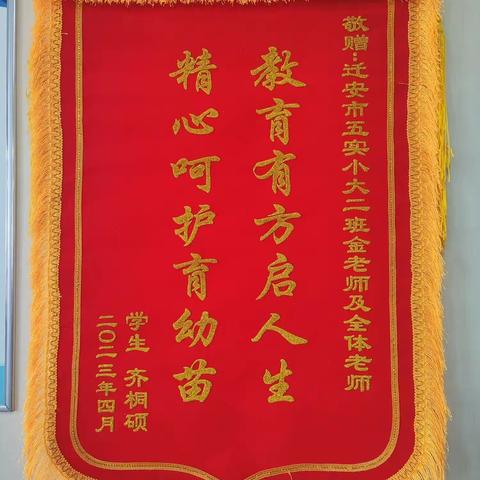 敬赠:迁安市五实小大二班金老师及全体老师
教育有方启人生
精心呵护育幼苗
学生 齐桐硕
二〇二三年四月